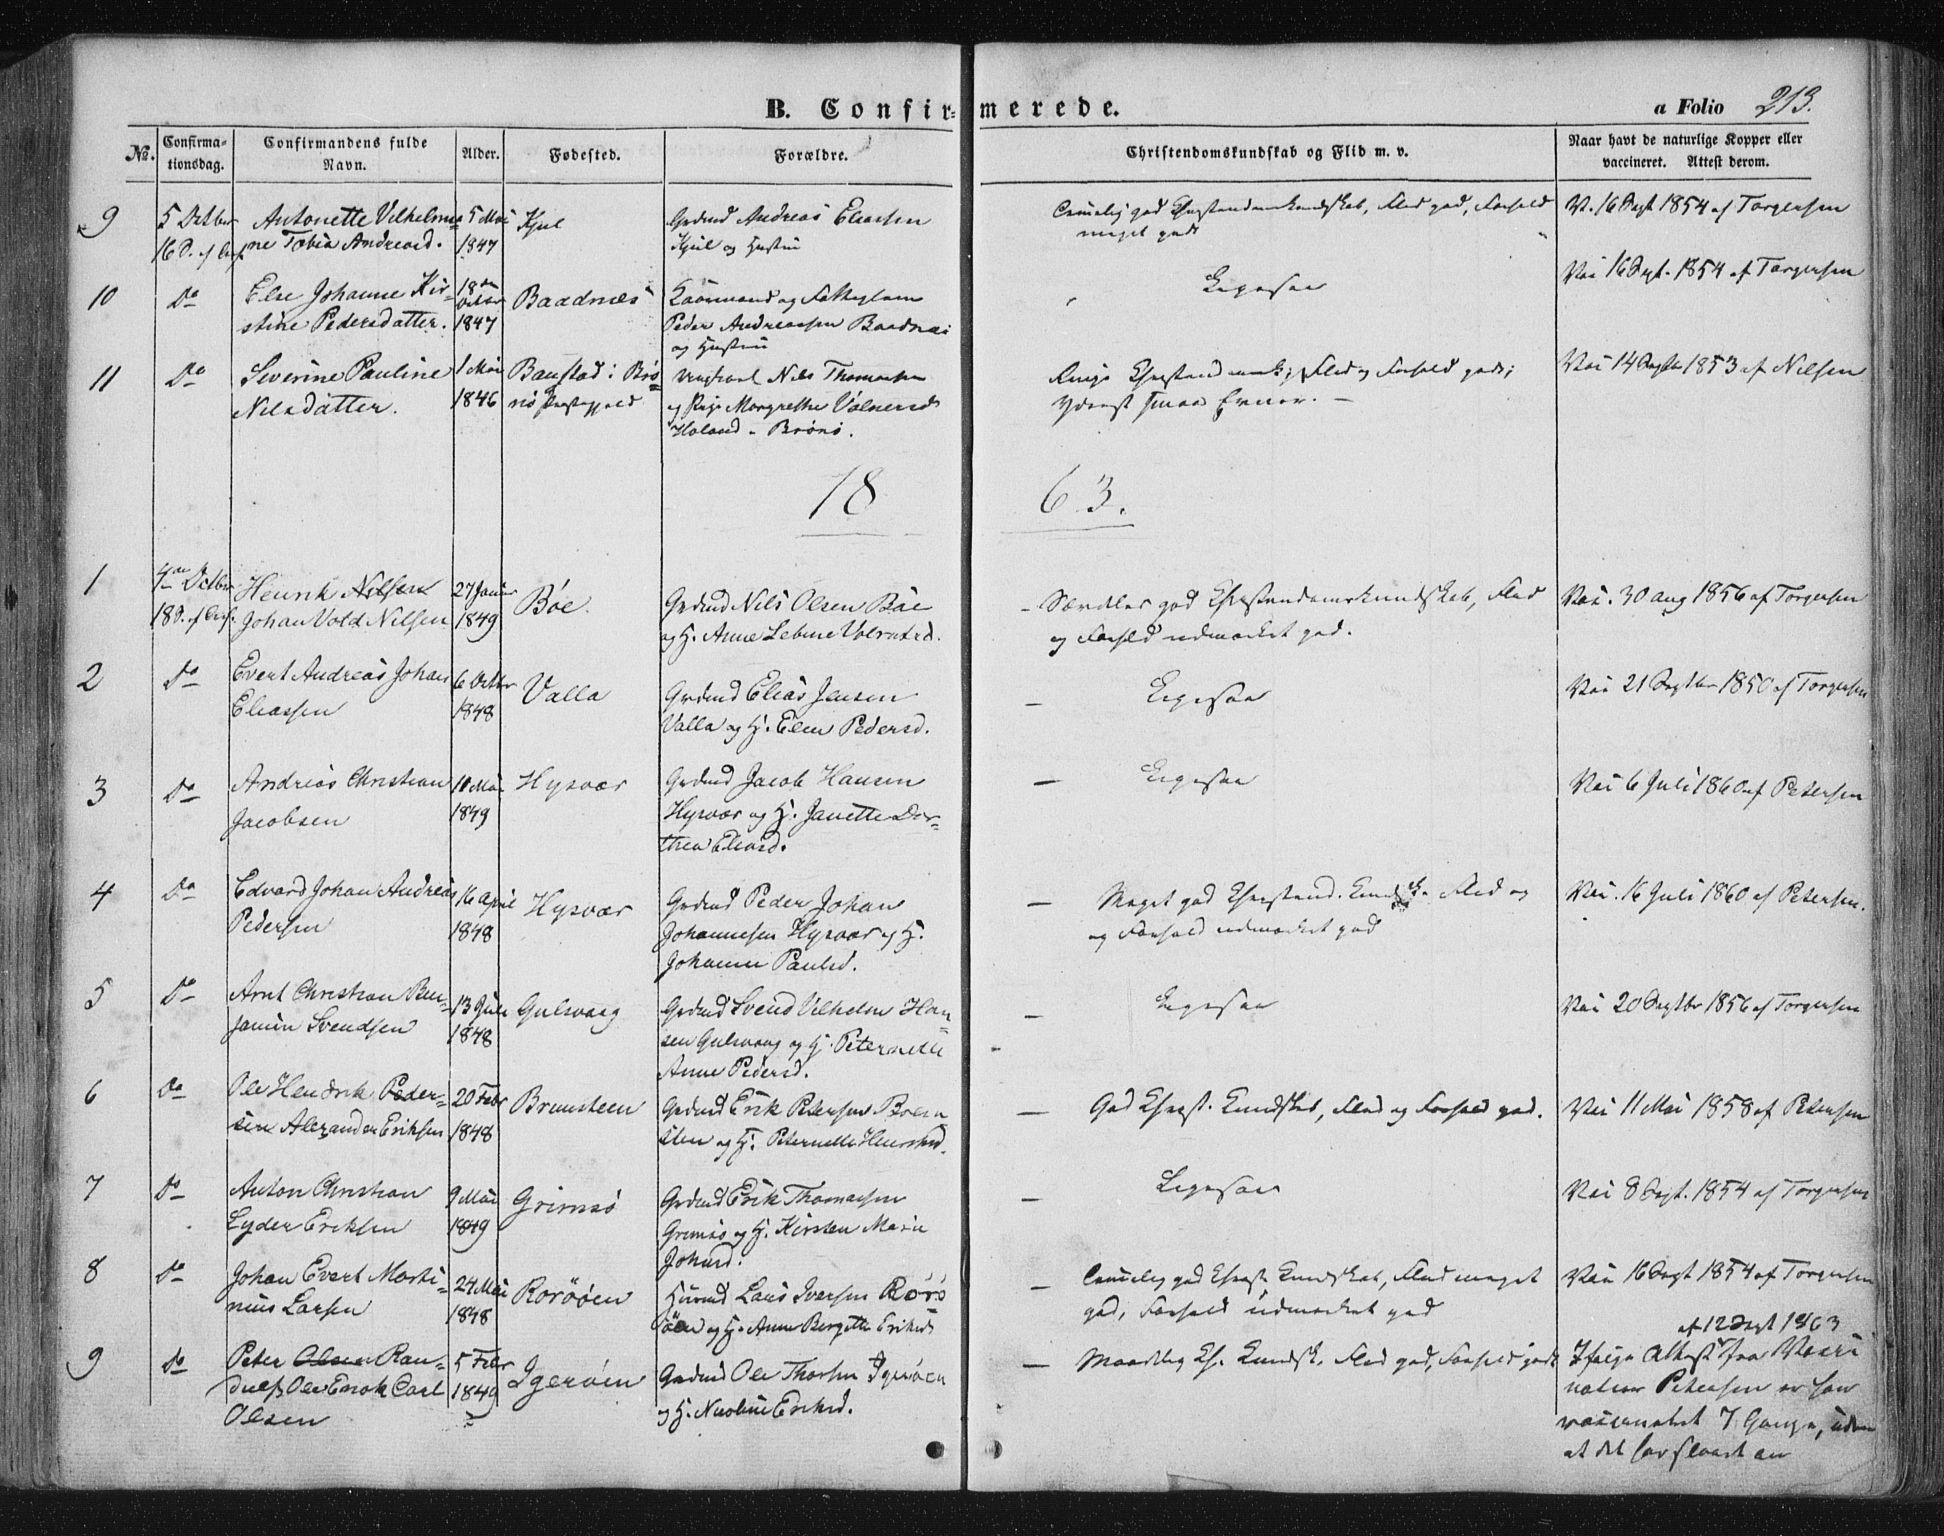 B. Confirmerede.
a Folio 213.
No.
Confirma-
tionsdag.
Confirmandens fulde
Navn.
Alder.
Fødested.
Forældre.
Christendomskundskab og Flid m. v.
Naar havt de naturlige Kopper eller
vaccineret. Attest derom.
9
5 Octber
16 S. ef
Antonette Vilhelmi-
ne Tobia Andreasd.
5 Mai
1847
Kjul
Grdmd Andreas Eliassen
Kjul og Hustru
Temmelig god Christendomskundskab, Flid god, Forhold
meget godt
V. 16 Sept 1854 af Torgersen
10
Do
Else Johanne Kir-
stine Pedersdatter.
18de
Octbr
1847
Baadnæs
Peder Andreassen Baadnæs
og Hustru
Ligesaa
Vac 16 Sept. 1854 af Torgersen
11
Do
Severine Pauline
Nilsdatter.
1 Mai
1846
Baustad i Brø-
nø Præstegjeld
Ungkarl Nils Thomassen
og Pige Margrethe Volnersd
Holand - Brønø.
Ringe Christendomsk; Flid og Forhold godt;
Yderst smaa Evner. -
Vac 14 Septbr 1853 af Nilsen
18
63.
1
4de Octber
18 S. ef
Henrik Nilsen
Johan Vold Nilsen
27 Januar
1849
Bøe.
Grdmd Nils Olsen Bøe
og H. Anne Lebine Volnersd.
- Særdeles god Christendomskundskab, Flid
og Forhold udmærket god.
Vac. 30 aug 1856 af Torgersen
2
Do
Evert Andreas Johan
Eliassen
6 Octbr
1848
Valla
Grdmd Elias Jensen
Valla og H. Elen Pedersd.
-
Ligesaa
Vac 21 Septbr 1850 af Torgersen
3
Do
Andreas Christian
Jacobsen
10 Mai
1849
Hysvær
Grdmd Jacob Hansen
Hysvær og H. Janette Dor-
thea Eliasd.
-
Ligesaa
Vac 6 Juli 1860 af Petersen
4
Do
Edvard Johan Andreas
Pedersen
16 April
1848
Hysvær
Grdmd Peder Johan
Johannesen Hysvær og H.
Johanna Paulsd.
-
Meget god Christend. Kundsk. Flid og
og Forhold udmærket god
Vac. 16 Juli 1860 af Petersen.
5
Do
Arnt Christian Ben-
jamin Svendsen
13 Juli
1848
Gulsvaag
Grdmd Svend Vilhelm Han-
sen Gulsvaag og H. Peternelle
Anne Pedersd.
-
Ligesaa
Vac 20 Septbr 1856 af Torgersen
6
Do
Ole Hendrik Peder-
sen Alexander Eriksen
20 Febr
1848
Brunsteen
Grdmd Erik Petersen Bruun
steen og H. Peternelle Henriksd.
-
God Christ. Kundskab, Flid og Forhold god.
Vac 11 Mai 1858 af Petersen
7
Do
Anton Christian
Lyder Eriksen
9 Mai
1849
Grimsø
Grdmd Erik Thomassen
Grimsø og H. Kirsten Marie
Johansd.
-
Ligesaa
Vac 8 Sept. 1854 af Torgersen
8
Do
Johan Evert Marti-
nius Larsen
24 Mai
1848
Rørøøen
Husmd Lars Iversen Rørø
øen og H. Anne Bergitte Eriksd
-
Temmelig god Christ. Kundskab, Flid meget
god, Forhold udmærket god
Vac 16 Sept 1854 af Torgersen
9
Do
Peter Olsen Ran-
dulf Ole Enok Carl
Olsen
5 Febr
1849
Igerøen
Grdmd Ole Thorsen Igerøen
og H. Nicoline Eriksd.
-
Maadelig Ch. Kundsk. Flid god, Forhold godt
af 12 Sept 1863
Ifølge Attest fra Vacci
natør Petersen er han
vaccineret 7 Gange, uden
at det har slaaet an